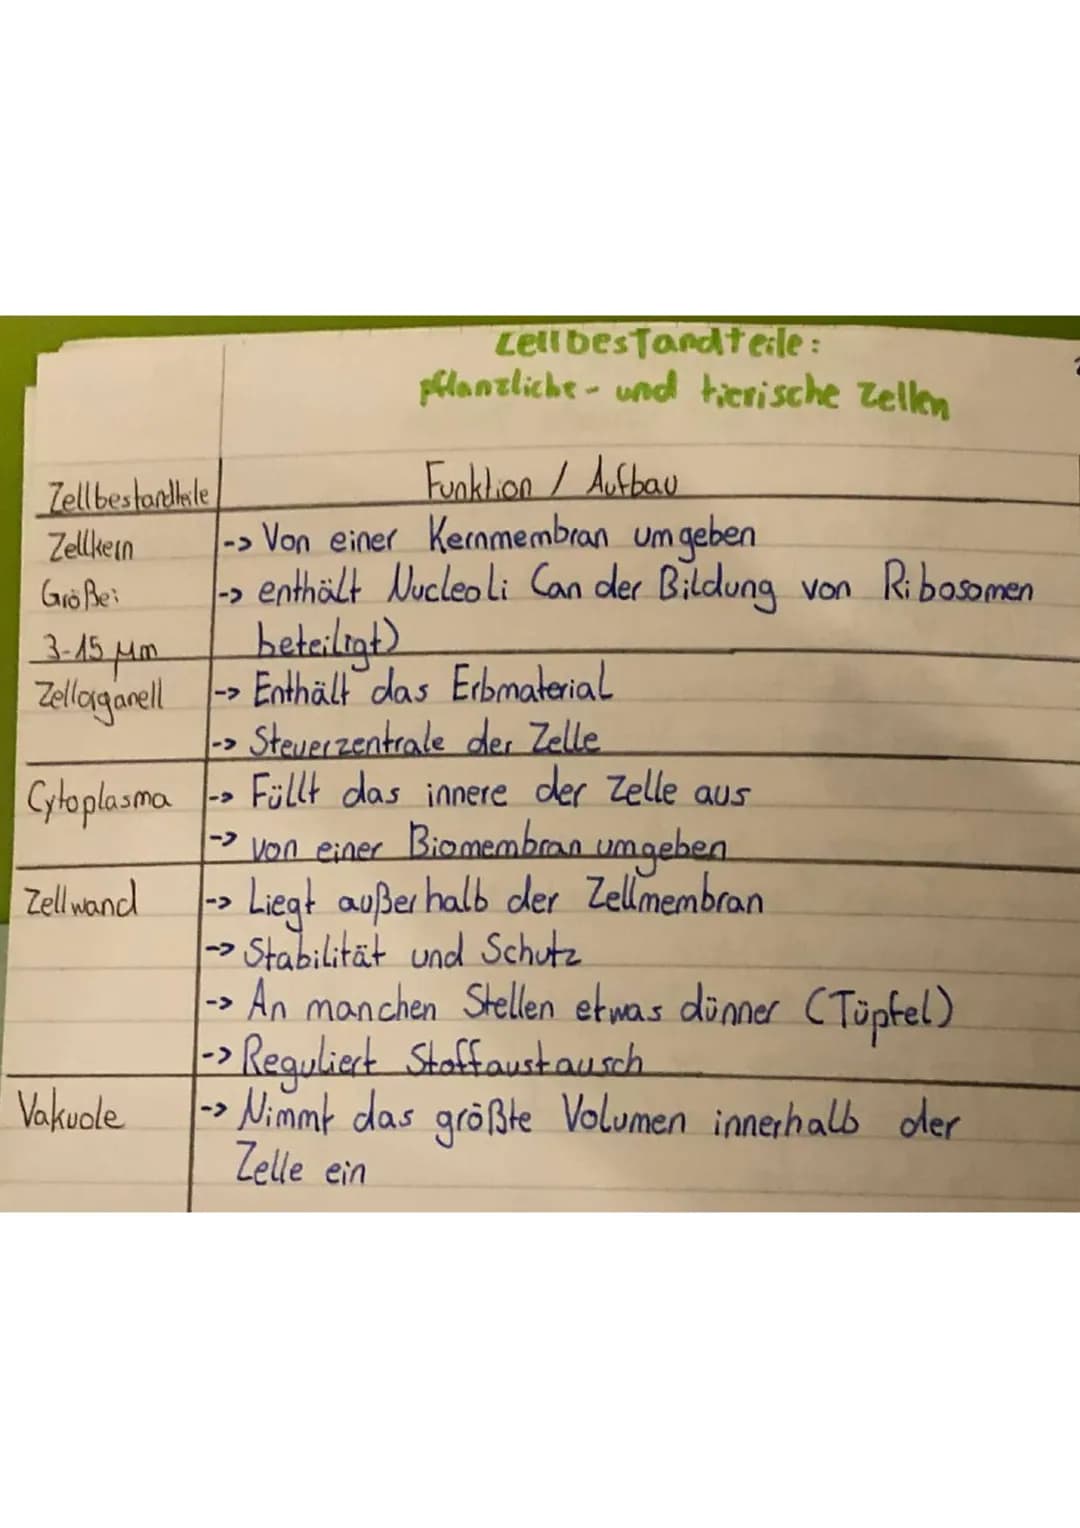 Zellbestandteile:
pflanzliche- und tierische Zellen
Zellbestandteile Funktion / Aufbau
Zellkern -> Von einer Kernmembran umgeben
Größe: -> enthält Nucleoli (an der Bildung von Ribosomen
3-15 µm beteiligt)
Zellorganell -> Enthält das Erbmaterial
-> Steuerzentrale der Zelle
Cytoplasma -> Füllt das innere der Zelle aus
-> von einer Biomembran umgeben
Zellwand -> Liegt außerhalb der Zellmembran
-> Stabilität und Schutz
-> An manchen Stellen etwas dünner (Tüpfel)
-> Reguliert Stoffaustausch
Vakuole -> Nimmt das größte Volumen innerhalb der
Zelle ein